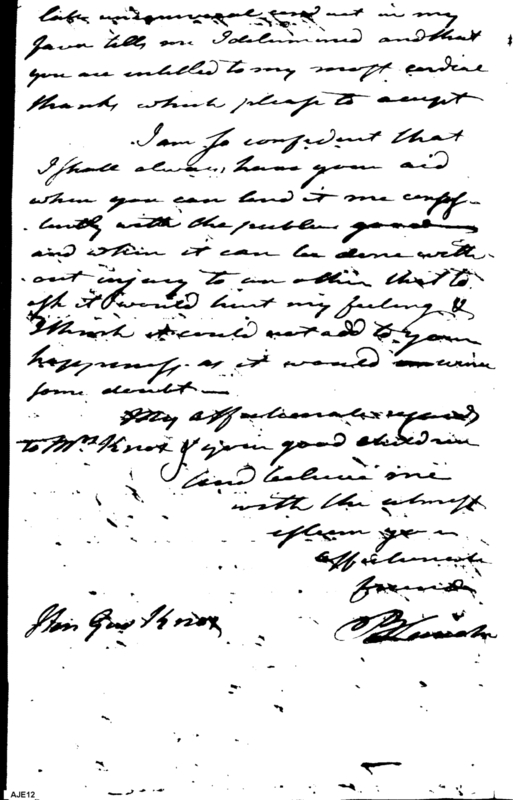 late unequivocal act in my
favor tells me I determined and that
you are intitled to my most cordial
thanks which please to accept
I am so confident that
I shall always have your aid
when you can lend it me consis-
-tently with the publick good
and when it can be done with-
-out injury to an other that to
ask it would hurt my feelings &
I think it could not add to your
happiness as it would
some doubt —
My affectionate regards
to Mrs Knox & your good children
and believe me
with the utmost
esteem your
affectionate
friend
Hon Genl Knox
B Lincoln
AJE12